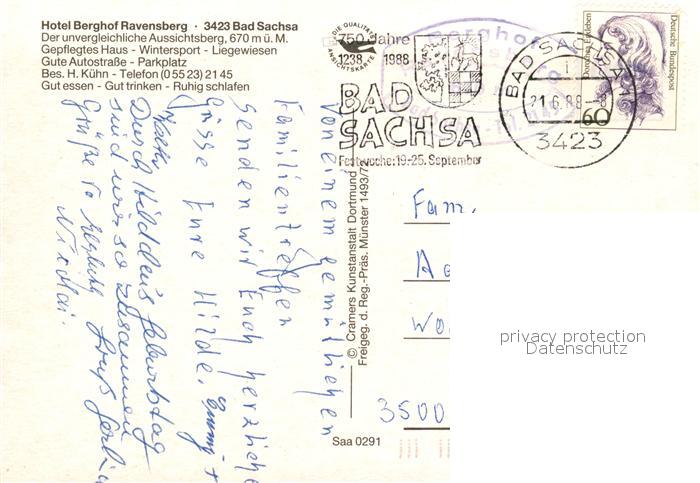 Hotel Berghof Ravensberg · 3423 Bad Sachsa
Der unvergleichliche Aussichtsberg, 670 m ü. M.
Gepflegtes Haus - Wintersport - Liegewiesen
Gute Autostraße - Parkplatz
Bes. H. Kühn - Telefon (0 55 23) 21 45
Gut essen - Gut trinken - Ruhig schlafen
DIE QUALITÄTS
ANSICHTSKARTE
750 Jahre
1238 1988
BAD
SACHSA
Festwoche: 19.-25. September
Berghof
BAD SACHSA 1
21.6.88-8
3423
Deutsche Bundespost
60
Von einem gemütlichen
Familientreffen
senden wir Euch herzliche
Grüsse Eure Hilde.
Durch Hildens Geburtstag
sind wir so zusammen
Nikolai.
© Cramers Kunstanstalt Dortmund
Freigeg. d. Reg.-Präs. Münster 1493/72
Fam.
3500
Saa 0291
privacy protection
Datenschutz